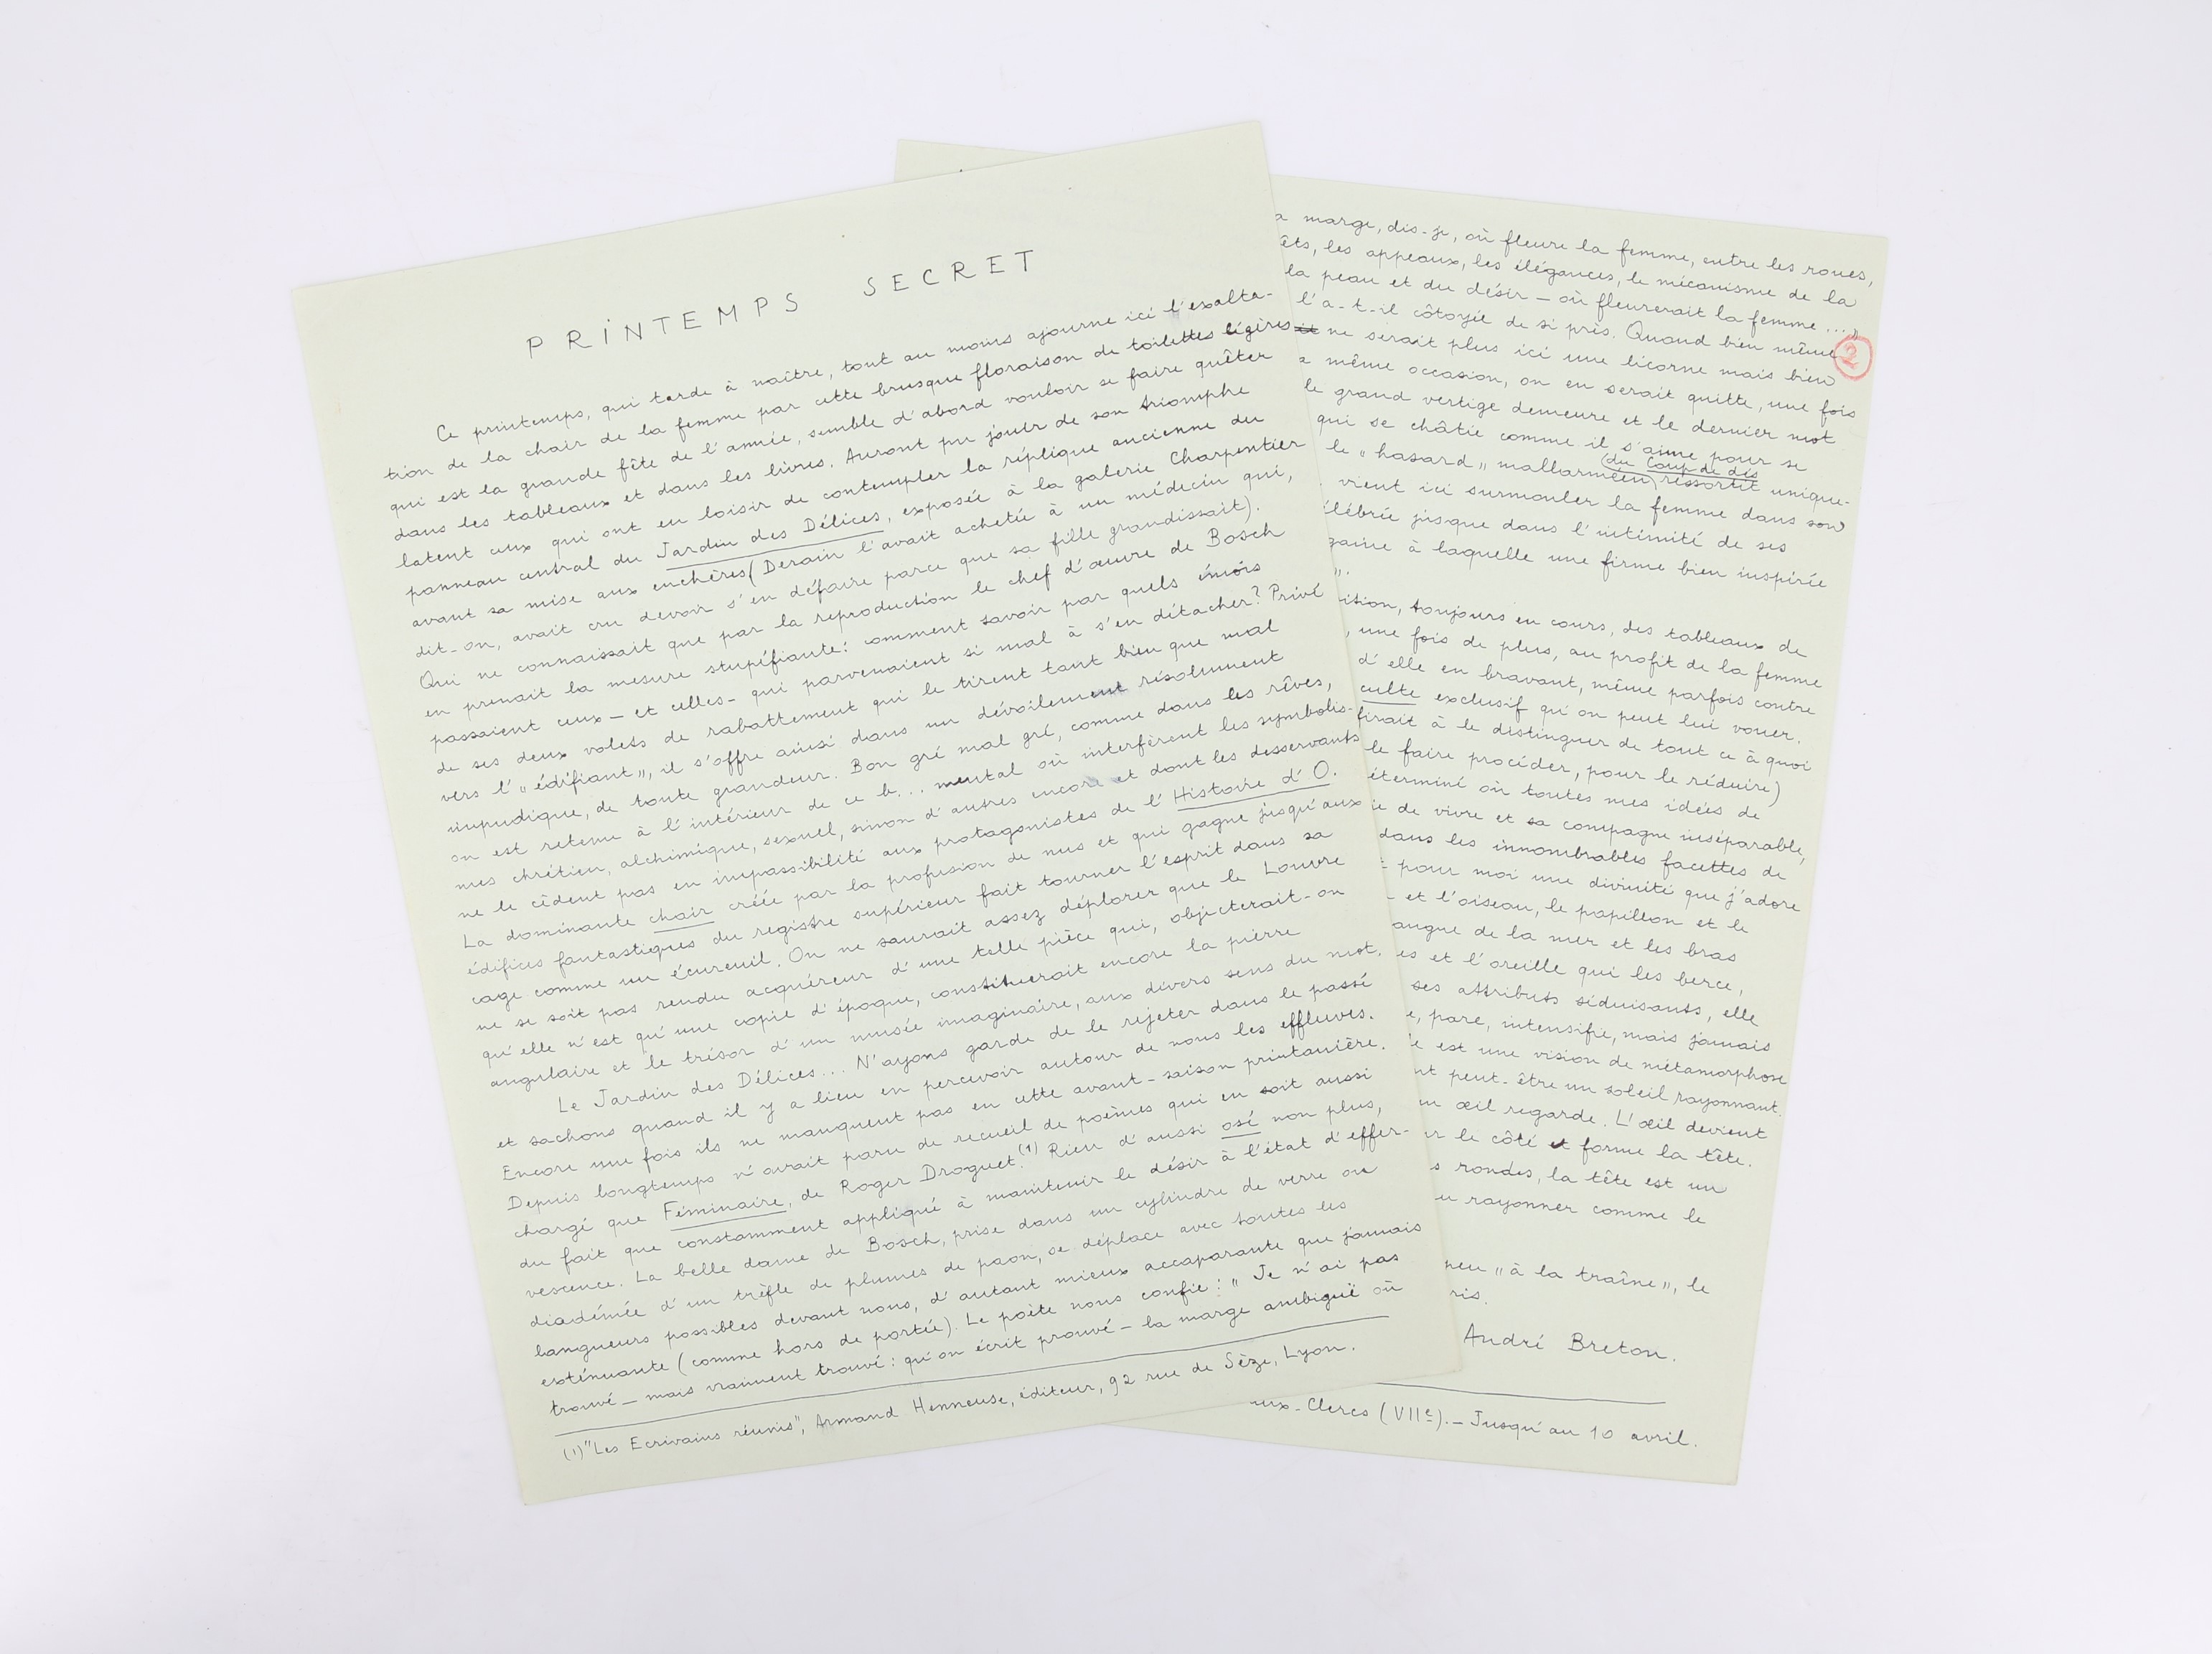 PRINTEMPS SECRET
Ce printemps, qui tarde à naître, tout au moins ajourne ici l'exalta-
tion de la chair de la femme par cette brusque floraison de toilettes légères
qui est la grande fête de l'année, semble d'abord vouloir se faire quêter
dans les tableaux et dans les livres. Auront pu jouir de son triomphe
latent ceux qui ont eu loisir de contempler la réplique ancienne du
panneau central du Jardin des Délices, exposée à la galerie Charpentier
avant sa mise aux enchères (Derain l'avait achetée à un médecin qui,
dit-on, avait cru devoir s'en défaire parce que sa fille grandissait).
Qui ne connaissait que par la reproduction le chef d'œuvre de Bosch
en prenait la mesure stupéfiante: comment savoir par quels émois
passaient ceux — et celles — qui parvenaient si mal à s'en détacher? Privé
de ses deux volets de rabattement qui le tirent tant bien que mal
vers l'"édifiant", il s'offre ainsi dans un dévoilement résolument
impudique, de toute grandeur. Bon gré mal gré, comme dans les rêves,
on est retenu à l'intérieur de ce b... mental où interfèrent les symbolis-
mes chrétien, alchimique, sexuel, sinon d'autres encore et dont les desservants
ne le cèdent pas en impassibilité aux protagonistes de l'Histoire d'O.
La dominante chair créée par la profusion de nus et qui gagne jusqu'aux
édifices fantastiques du registre supérieur fait tourner l'esprit dans sa
cage comme un écureuil. On ne saurait assez déplorer que le Louvre
ne se soit pas rendu acquéreur d'une telle pièce qui, objecterait-on
qu'elle n'est qu'une copie d'époque, constituerait encore la pierre
angulaire et le trésor d'un musée imaginaire, aux divers sens du mot.
Le Jardin des Délices... N'ayons garde de le rejeter dans le passé
et sachons quand il y a lieu en percevoir autour de nous les effluves.
Encore une fois ils ne manquent pas en cette avant-saison printanière.
Depuis longtemps n'avait paru de recueil de poèmes qui en soit aussi
chargé que Féminaire, de Roger Droguet.(1) Rien d'aussi osé non plus,
du fait que constamment appliqué à maintenir le désir à l'état d'effer-
vescence. La belle dame de Bosch, prise dans un cylindre de verre ou
diadémée d'un trèfle de plumes de paon, se déplace avec toutes les
langueurs possibles devant nous, d'autant mieux accaparante que jamais
exténuante (comme hors de portée). Le poète nous confie: "Je n'ai pas
trouvé — mais vraiment trouvé: qu'on écrit prouvé — la marge ambiguë où
(1) "Les Ecrivains réunis", Armand Henneuse, éditeur, 92 rue de Sèze, Lyon.
2
a marge, dis-je, où fleure la femme, entre les roues,
êts, les appeaux, les élégances, le mécanisme de la
la peau et du désir — où fleurerait la femme...."
l'a-t-il côtoyée de si près. Quand bien même
ne serait plus ici une licorne mais bien
même occasion, on en serait quitte, une fois
le grand vertige demeure et le dernier mot
qui se châtie comme il s'aime pour se
le "hasard" mallarméen (du Coup de dés) ressortit unique-
vient ici surmouler la femme dans son
élébrée jusque dans l'intimité de ses
gaine à laquelle une firme bien inspirée
".
ition, toujours en cours, des tableaux de
, une fois de plus, au profit de la femme
d'elle en bravant, même parfois contre
culte exclusif qu'on peut lui vouer.
firait à le distinguer de tout ce à quoi
le faire procéder, pour le réduire)
éterminé où toutes mes idées de
ie de vivre et sa compagne inséparable,
dans les innombrables facettes de
pour moi une divinité que j'adore
et l'oiseau, le papillon et le
angue de la mer et les bras
es et l'oreille qui les berce,
ses attributs séduisants, elle
e, pare, intensifie, mais jamais
le est une vision de métamorphose
nt peut-être un soleil rayonnant.
un œil regarde. L'œil devient
ur le côté et forme la tête.
s rondes, la tête est un
u rayonner comme le
peu "à la traîne", le
ris.
André Breton.
aux-Clercs (VIIe). — Jusqu'au 10 avril.